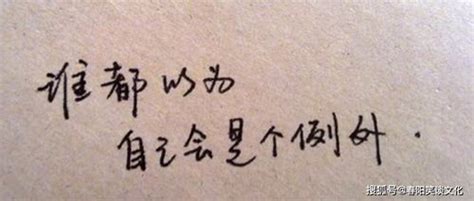 谁都以为
自己会是个例外.
搜狐号@春阳笑谈文化